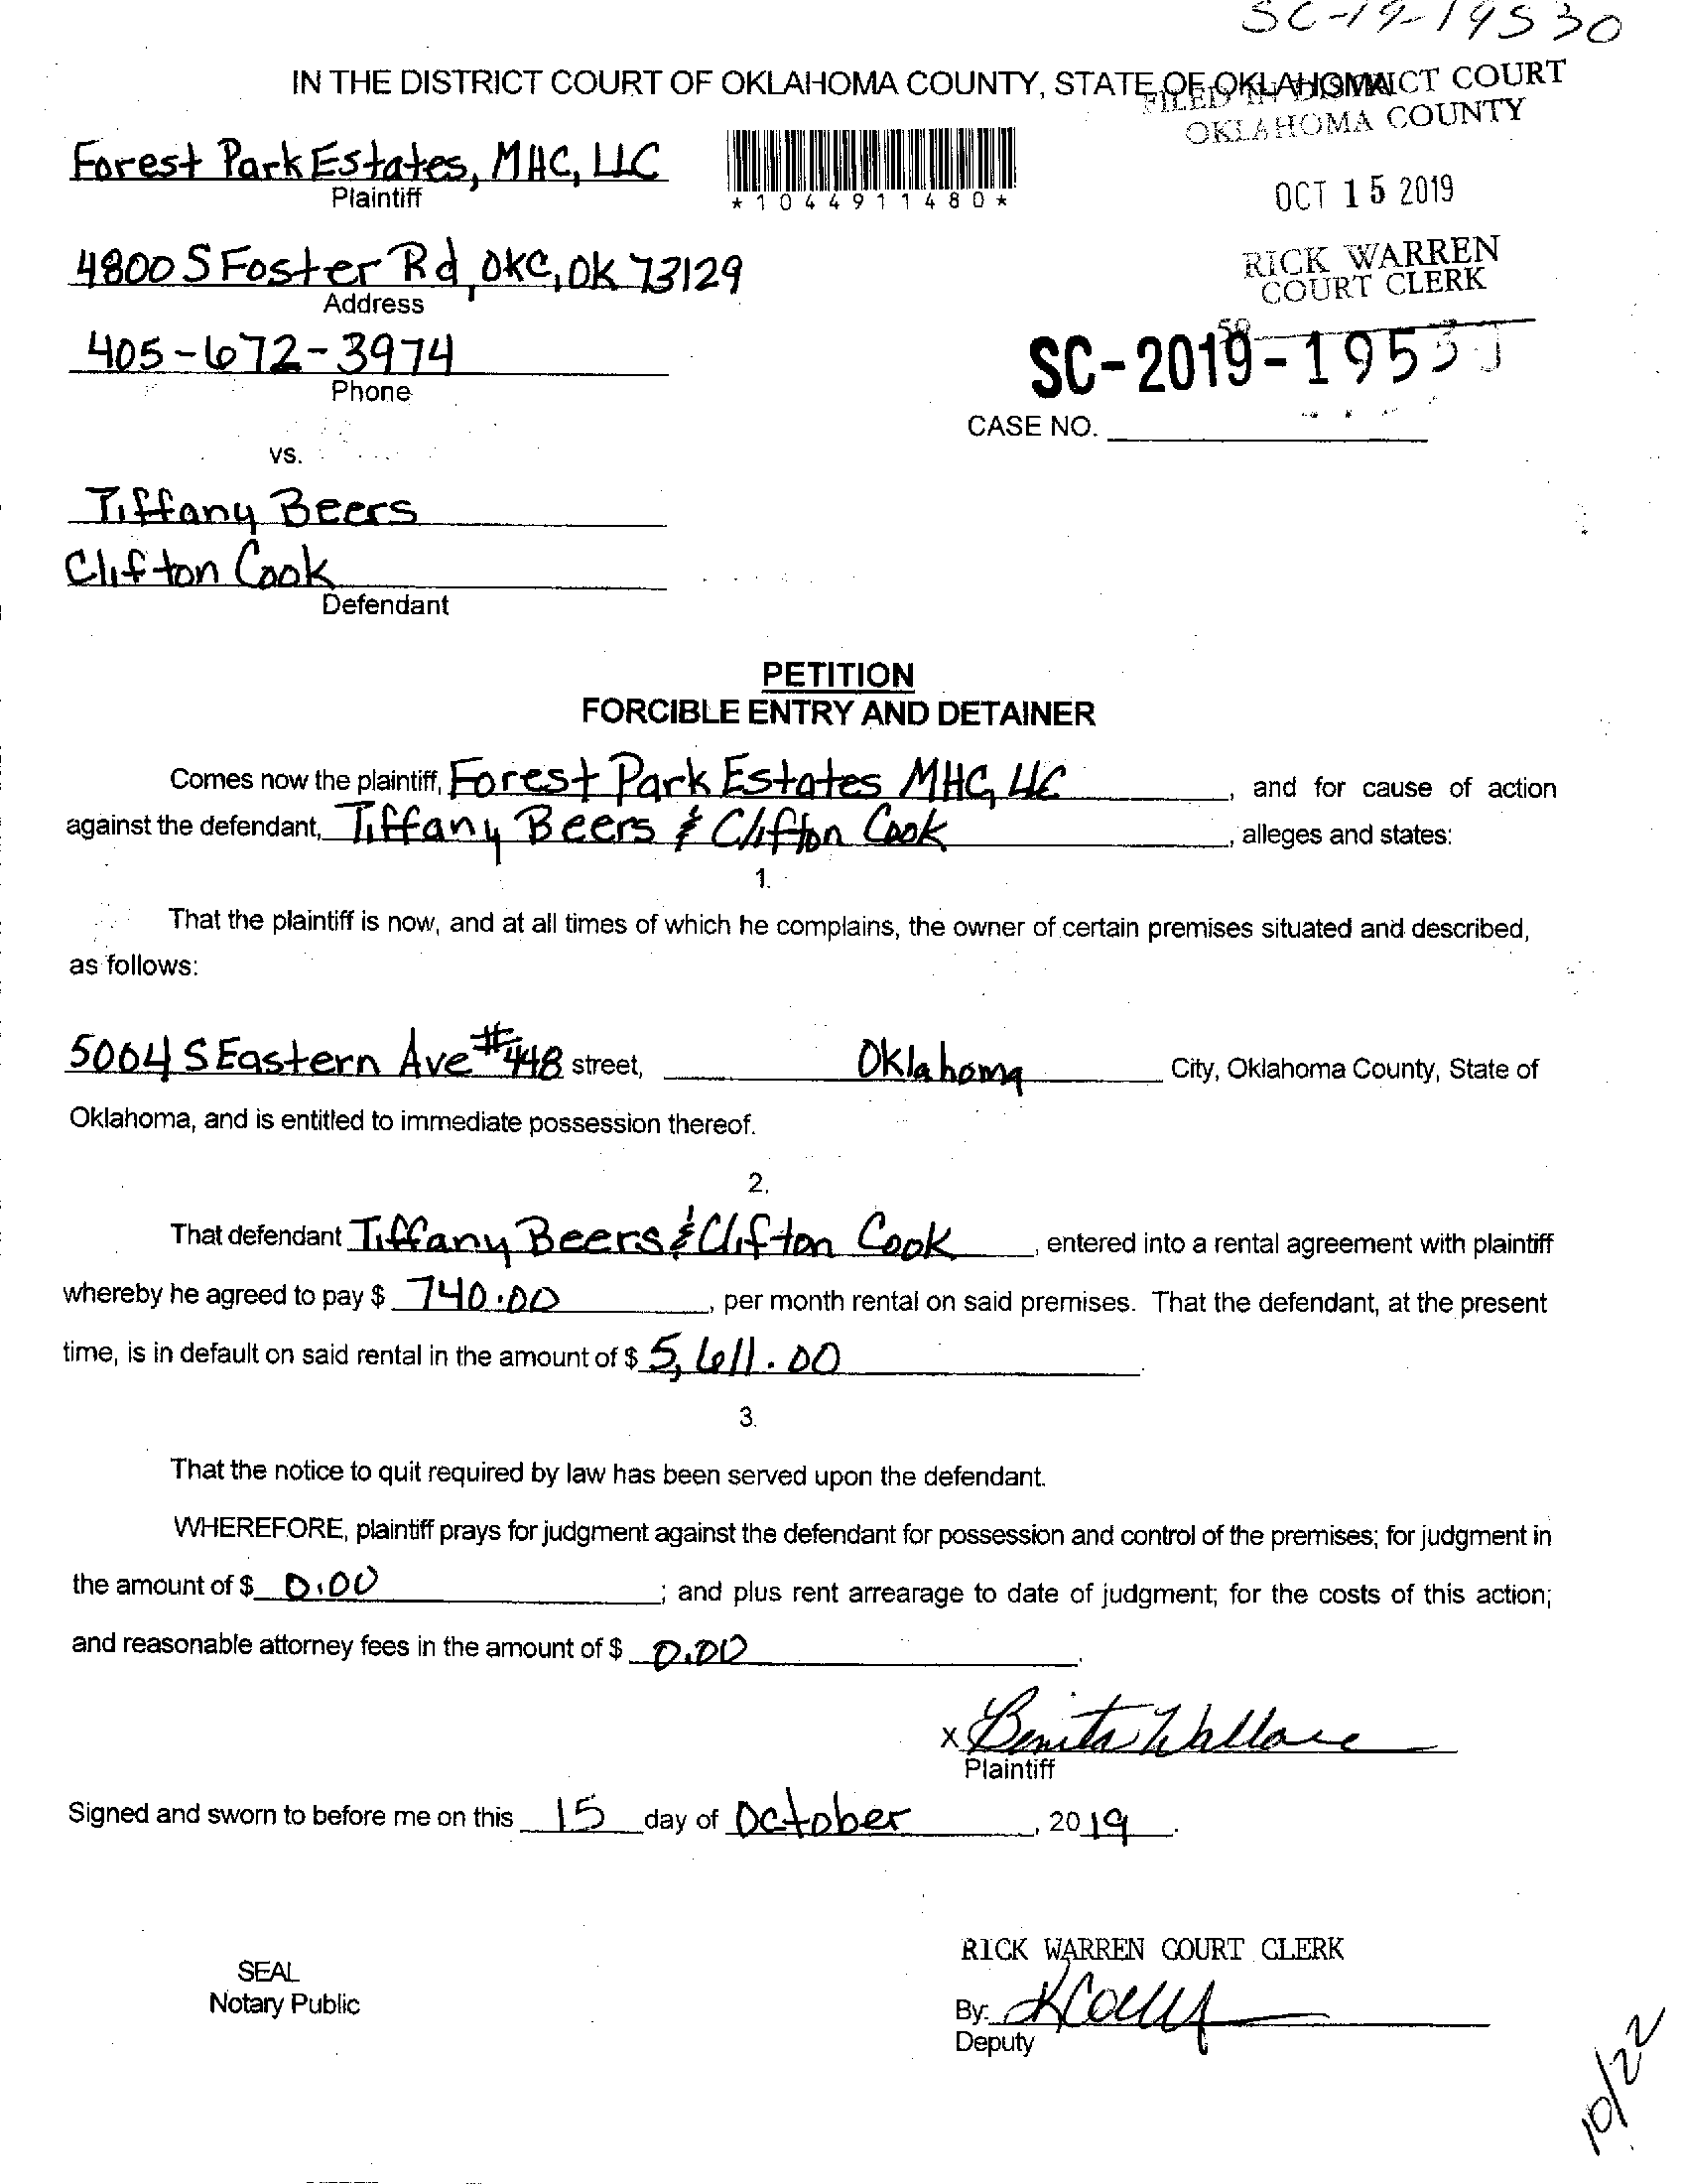 SC-19-19530
IN THE DISTRICT COURT OF OKLAHOMA COUNTY, STATE OF OKLAHOMA
FILED IN DISTRICT COURT
OKLAHOMA COUNTY
Forest Park Estates, MHC, LLC
Plaintiff
*1044911480*
OCT 15 2019
4800 S Foster Rd, OKC, OK 73129
Address
RICK WARREN
COURT CLERK
405-672-3974
Phone
59
SC-2019-1953
CASE NO.
vs.
Tiffany Beers
Clifton Cook
Defendant
PETITION
FORCIBLE ENTRY AND DETAINER
Comes now the plaintiff, Forest Park Estates MHC, LLC, and for cause of action
against the defendant, Tiffany Beers & Clifton Cook, alleges and states:
1.
That the plaintiff is now, and at all times of which he complains, the owner of certain premises situated and described,
as follows:
5004 S Eastern Ave #448 street, Oklahoma City, Oklahoma County, State of
Oklahoma, and is entitled to immediate possession thereof.
2.
That defendant Tiffany Beers & Clifton Cook, entered into a rental agreement with plaintiff
whereby he agreed to pay $ 740.00, per month rental on said premises. That the defendant, at the present
time, is in default on said rental in the amount of $ 5,611.00.
3.
That the notice to quit required by law has been served upon the defendant.
WHEREFORE, plaintiff prays for judgment against the defendant for possession and control of the premises; for judgment in
the amount of $ 0.00; and plus rent arrearage to date of judgment; for the costs of this action;
and reasonable attorney fees in the amount of $ 0.00.
x Benita Wallace
Plaintiff
Signed and sworn to before me on this 15 day of October, 2019.
RICK WARREN COURT CLERK
SEAL
Notary Public
By:
Deputy
10/22